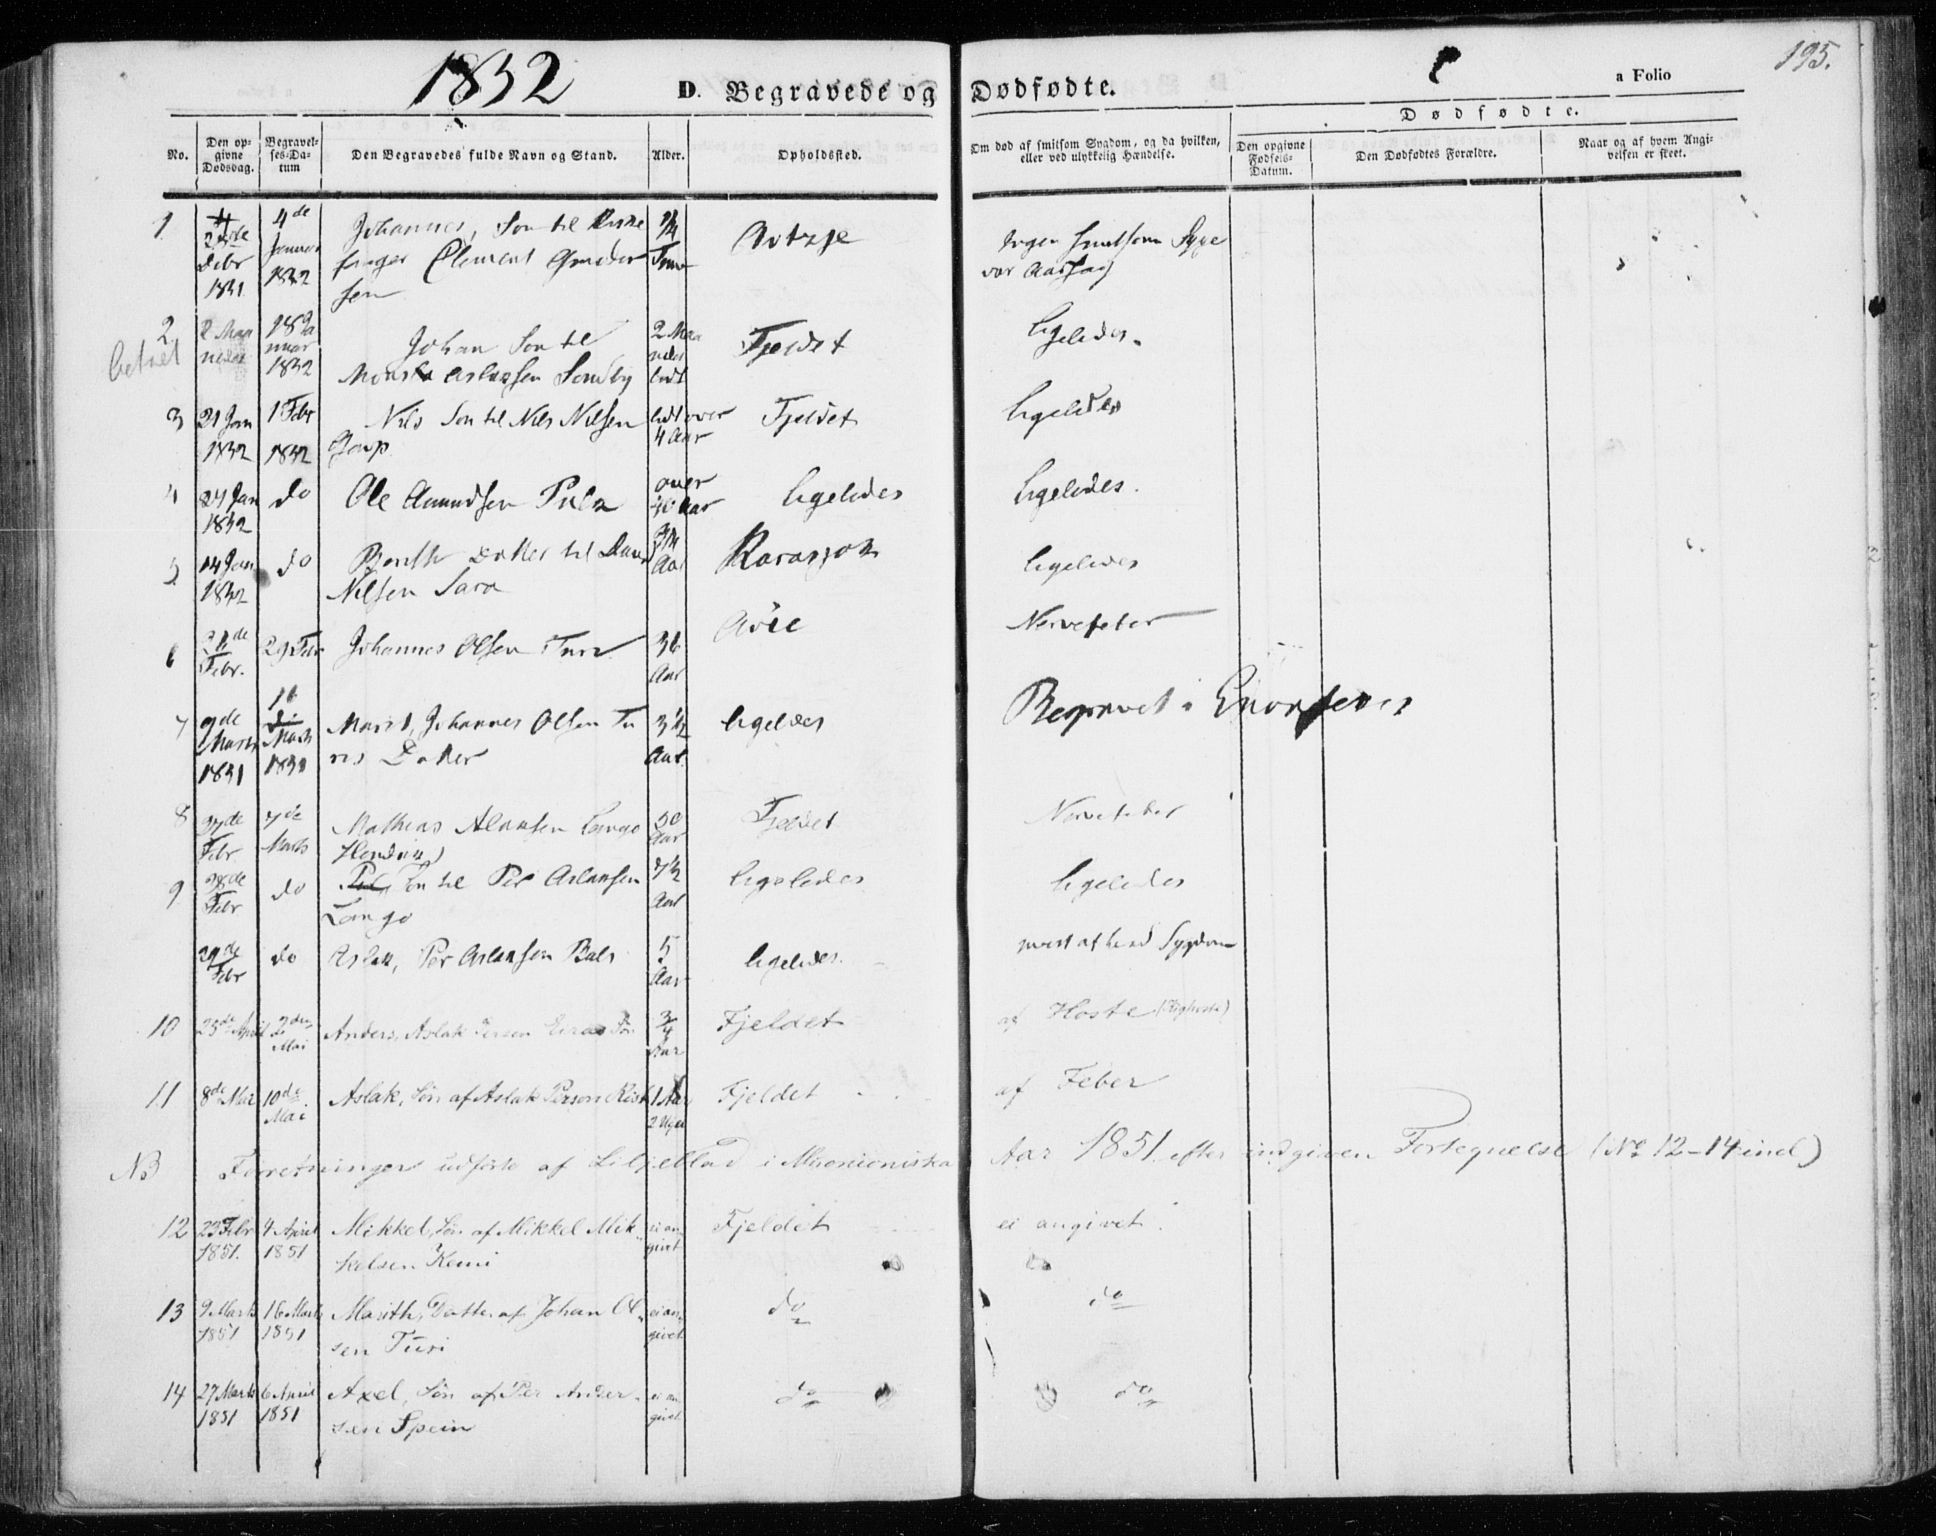 1852
D. Begravede og Dødfødte.
a Folio
195.
No.
Den opgivne Dødsdag.
Begravelses-Datum
Den Begravedes fulde Navn og Stand.
Alder.
Opholdssted.
Om død af smitsom Sygdom, og da hvilken, eller ved ulykkelig Hændelse.
Dødfødte.
Den opgivne Fødsels-Datum.
Den Dødfødtes Forældre.
Naar og af hvem Angivelsen er skeet.
1
Debr 1851
4de Januar 1852
Johannes, Søn til Kirke
sanger Clement
sen
Avtzje
Ingen smitsom Syge
var Aarsag
2
betalt
18 Januar 1852
Johan Søn til
Aslaksen Somby
2 Maaneder
Fjeldet
ligeledes.
3
21 Jan 1852
1 Febr 1852
Nils Søn til Nils Nilsen
Gaup
lidt over 4 Aar
Fjeldet
ligeledes
4
24 Jan 1852
do
Ole Amundsen
over Aar
ligeledes
ligeledes.
5
14 Jan 1852
do
Berith Datter til
Nilsen Sara
Aar
Karasjok
ligeledes
6
Febr.
29 Febr
Johannes Olsen Turi
36 Aar
Avie
Nervefeber
7
9de Marts 1851
Marts 1851
Marit, Johannes Olsen Tu
ris Datter
3½ Aar.
ligeledes
Begravet i Enontekis
8
27de Febr
7de Marts
Mathias Aslaksen Lango
50 Aar
Fjeldet
Nervefeber
9
28de Febr
do
Per, Søn til Per Aslaksen
Lango
7½ Aar
ligeledes
ligeledes
29de Febr
do
Aslak, Per Aslaksen Bals
5 Aar
ligeledes
Sygdom
10
25de April
2den Mai
Anders, Aslak Persen Eiras Søn
3/4 Aar
Fjeldet
af Hoste (Kighoste)
11
8de Mai
10de Mai
Aslak, Søn af Aslak Persen Rist
1 Aar 2 Uger
Fjeldet
af Feber
NB Forretninger udførte af Liljeblad i Muonioniska Aar 1851 efter indgiven Fortegnelse (No 12-14 incl)
12
23 Febr 1851.
4 April 1851
Mikkel, Søn af Mikkel Mik-
kelsen Kemi
ei angivet
Fjeldet
ei angivet.
13
9 Marts 1851
16 Marts 1851
Marith, Datter af Johan Ol-
sen Turi
ei angivet
do
do
14
27 Marts 1851
6 April 1851
Axel, Søn af Per Ander-
sen Spein
ei angivet
do
do